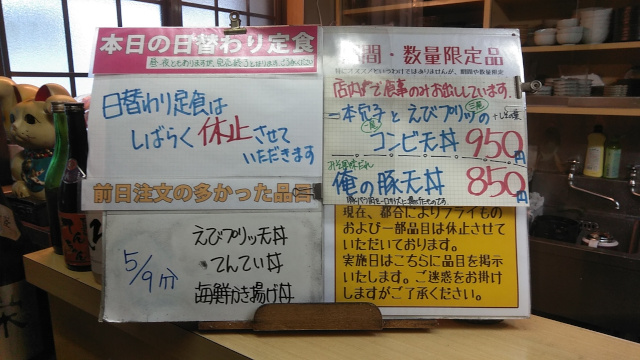 本日の日替わり定食
日替わり定食は
しばらく休止させて
いただきます
前日注文の多かった品書
5/9分
えびプリッ天丼
てんてい丼
海鮮かき揚げ丼
間・数量限定品
店内で食事のみお出ししています。
一本穴子とえびプリッの
コンビ天丼 950円
俺の豚天丼 850円
現在、都合によりフライもの
および一部品目は休止させて
いただいております。
実施日はこちらに品目を掲示
いたします。ご迷惑をお掛け
しますがご了承ください。